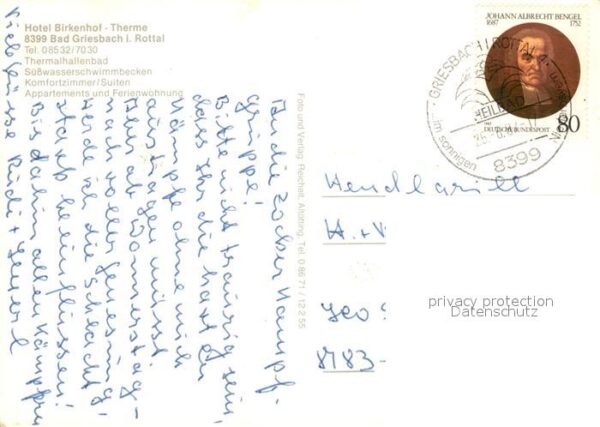 Hotel Birkenhof · Therme
8399 Bad Griesbach i. Rottal
Tel. 08532/7030
Thermalhallenbad
Süßwasserschwimmbecken
Komfortzimmer/Suiten
Appartements und Ferienwohnung
An die Zocker Kampf-
gruppe!
Bitte nicht traurig sein,
dass Ihr die harten
Kämpfe ohne mich
austragen müsst
Aber ab Donnerstag
nach voller Genesung,
werde ich die Schlacht
stark beeinflussen!
Bis dahin allen Kämpfern
viele Grüsse Rudi +
Foto und Verlag Reichelt, Altötting, Tel. 0 86 71 / 12 2 55
JOHANN ALBRECHT BENGEL
1687 1752
DEUTSCHE BUNDESPOST 80
GRIESBACH I ROTTAL
HEILBAD
im sonnigen
8399
H. + V
8183-
privacy protection
Datenschutz